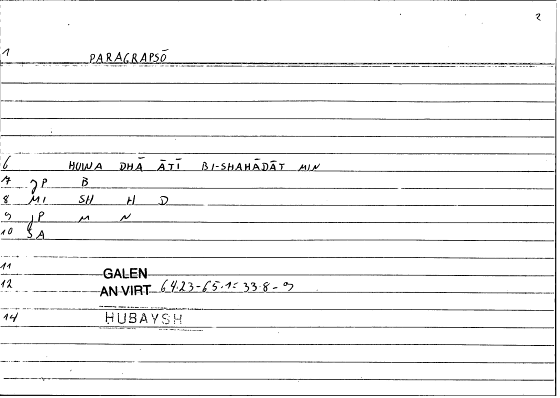 2
1 PARAGRAPSŌ
6 HUWA DHĀ ĀTĪ BI-SHAHĀDĀT MIN
7 JP B
8 MI SH H D
9 JP M N
10 SA
11 GALEN
12 AN VIRT 64.23-65.1= 33.8-9
14 HUBAYSH